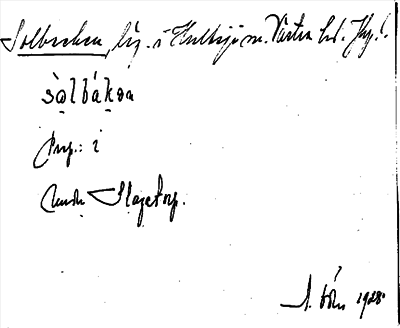 Solbacken, lg. i Hultsjö sn. Västra hd. Jkp. l.
sòlbákən
Prep.: i
under Slagetorp.
1928